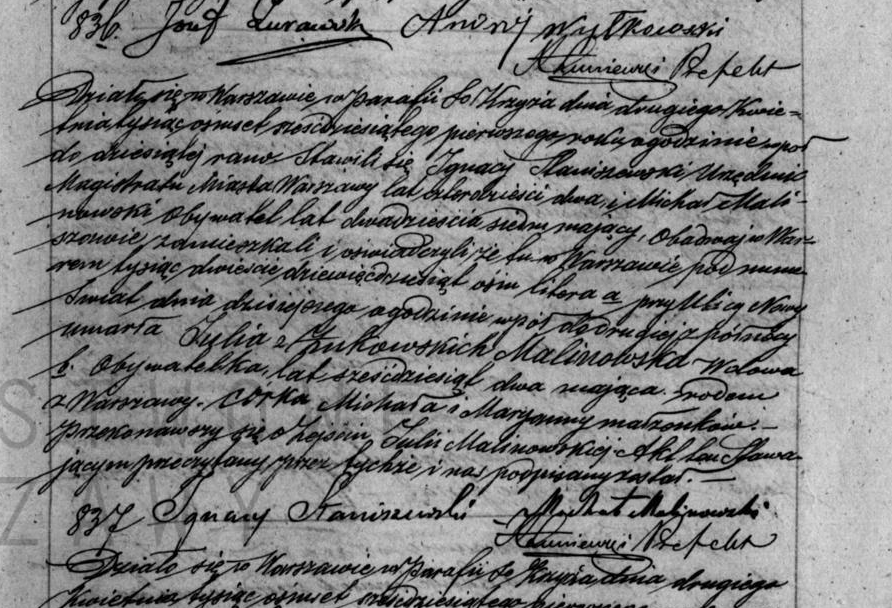 836. Józef Żurawski Andrzej Wytkowski
Prefekt
Działo się w Warszawie w parafii So Krzyża dnia drugiego Kwie=
tnia tysiąc ośmset sześćdziesiątego pierwszego roku, o godzinie wpół
do dziesiątej rano. Stawili się, Ignacy Staniszewski Urzędnik
Magistratu Miasta Warszawy lat czterdzieści dwa, i Michał Mali-
nowski Obywatel lat dwadzieścia siedm mający, Obadwaj w War-
szawie zamieszkali i oświadczyli, że tu w Warszawie pod nume-
rem tysiąc dwieście dziewięćdziesiąt ośm litera a przy Ulicy Nowy
Świat dnia dzisiejszego o godzinie wpół do drugiej z północy
umarła Julia z Żukowskich Malinowska Wdowa
b. Obywatelka, lat sześćdziesiąt dwa mająca. rodem
z Warszawy. Córka Michała i Maryanny małżonków. –
Przekonawszy się o zejściu Julii Malinowskiej Akt ten Stawa-
jącym przeczytany przez tychże i nas podpisany został. –
837 Ignacy Staniszewski Michał Malinowski
Prefekt
Działo się w Warszawie w parafii So Krzyża dnia drugiego
Kwietnia tysiąc ośmset sześćdziesiątego pierwszego